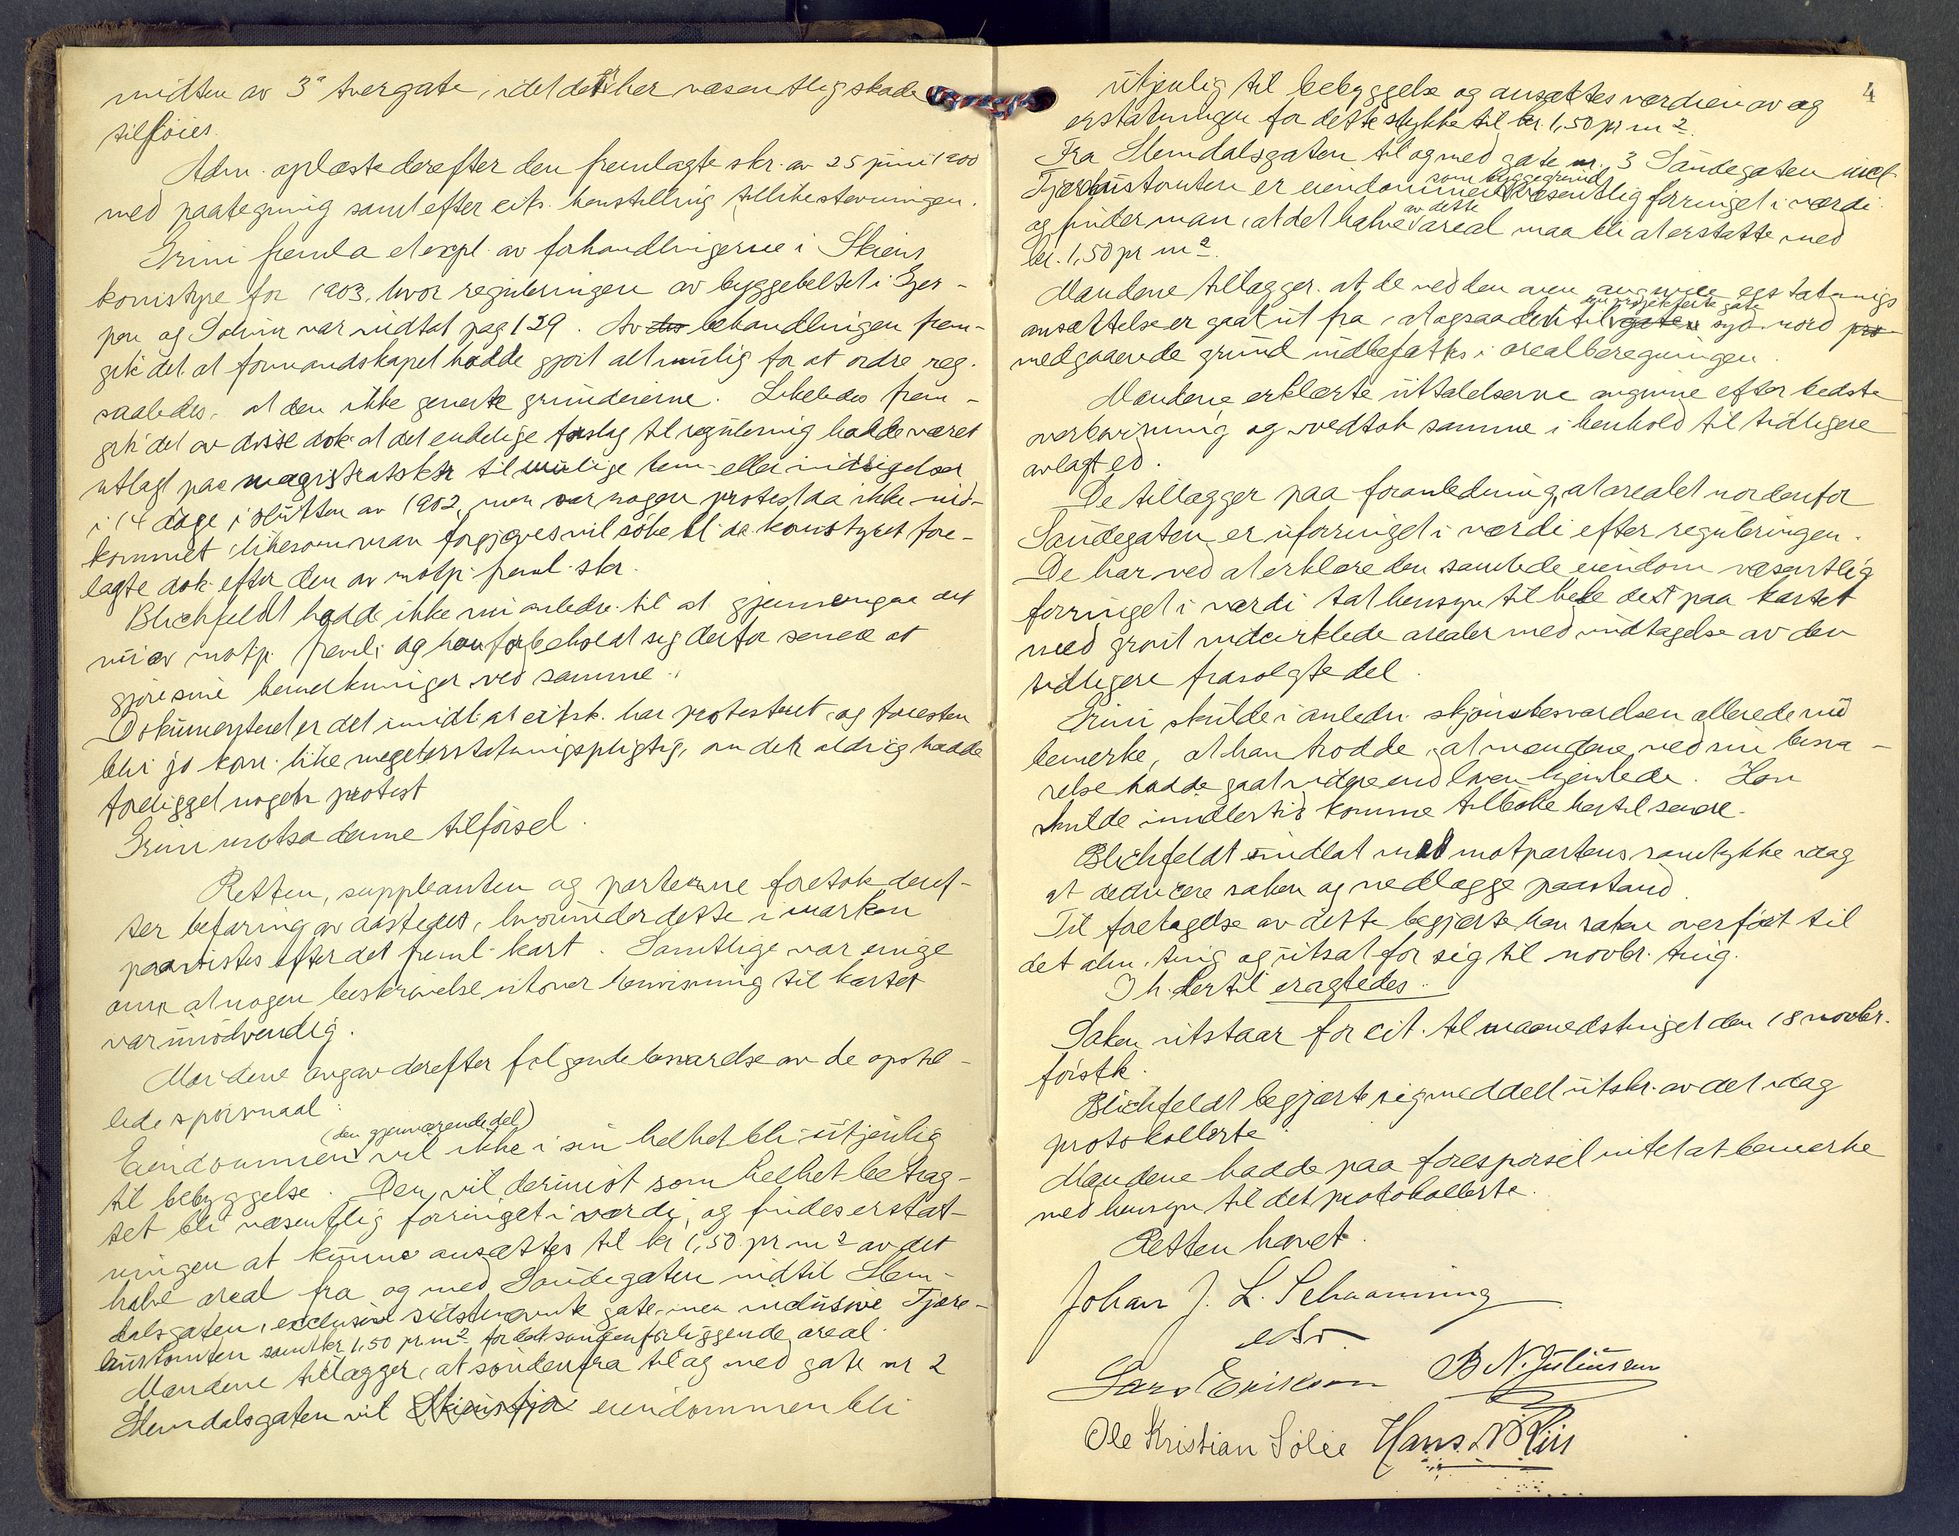 midten av 3die tvergate, idet det her væsentlig skade
tilføies.
Adm. oplæste derefter den fremlagte skr. av 25 juni 1900
med paategning samt efter cits. henstilling tillike stevningen.
Grini fremla et expl. av forhandlingerne i Skiens
komstyre for 1903, hvor reguleringen av byggebeltet i Gjer-
pen og Solum var indtat pag 129. Av behandlingen frem-
gik det at formandskapet hadde gjort alt mulig for at ordre reg.
saaledes, at den ikke generte grundeierne. Likeledes frem-
gik det av disse dok. at det endelige forslag til regulering hadde været
utlagt paa magistratsktr til mulige bem- eller indsigelser
i 14 dage i slutten av 1902, men nogen protest saa ikke ind-
kommet, likesom man forgjæves vil søke bl. de komstyret fore-
lagte dok. efter den av motp. freml. skr.
Blichfeldt hadde ikke nu anledn. til at gjennemgaa det
nu av motp. freml. og han forbeholdt sig derfor senere at
gjøre sine bemerkninger ved samme.
Dokumenteret er det imidl. at citsk. har protestert, og foresten
blir jo kom. like meget erstatningspligtig, om det aldrig hadde
foreligget nogen protest
Grini motsa denne tilførsel.
Retten, suppleanten og parterne foretok deref-
ter befaring av aastedet, hvorunder dette i marken
paavistes efter det freml. kart. Samtlige var enige
om at nogen beskrivelse utover henvisning til kartet
var unødvendig.
Mændene avgav derefter følgende besvarelse av de opstil-
lede spørsmaal:
(den gjenværende del)
Eiendommen vil ikke i sin helhet bli utjenlig
til bebyggelse. Den vil derimot som helhet betrag-
tet bli væsentlig forringet i værdi, og findes erstat-
ningen at kunne ansættes til kr 1,50 pr m2 av det
halve areal fra og med Saudegaten indtil Hem-
dalsgaten, exclusive sidstnævnte gate, men inclusive Tjære-
hustomten samt kr 1,50 pr. m2 for det søndenforliggende areal.
Mændene tillægger, at søndenfra til og med gate nr 2
Hemdalsgaten vil eiendommen bli
4
utjenlig til bebyggelse og ansættes værdien av og
erstatningen for dette stykke til kr. 1,50 pr m2.
Fra Hemdalsgaten til og med gate nr. 3 Saudegaten incl.
som byggegrund
Tjærehustomten er eiendommen væsentlig forringet i værdi
av dette
og finder man, at det halve areal maa bli at erstatte med
kr. 1,50 pr m2.
Mændene tillægger, at de ved den oven angivne erstatnings
projekterte gate
ansættelse er gaat ut fra, at ogsaa den til syd-nord
medgaaende grund indbefattes i arealberegningen
Mændene erklærte uttalelserne avgivne efter bedste
overbevisning og vedtok samme i henhold til tidligere
avlagt ed.
De tillægger paa foranledning, at arealet nordenfor
Saudegaten er uforringet i værdi efter reguleringen.
De har ved at erklære den samlede eiendom væsentlig
forringet i værdi tat hensyn til hele det paa kartet
med grønt indcirklede arealer med undtagelse av den
tidligere frasolgte del.
Grini skulde i anledn. skjønsbesvarelsen allerede nu
bemerke, at han trodde, at mændene ved sin besva-
relse hadde gaat videre end loven hjemlede. Han
skulde imidlertid komme tilbake hertil senere.
Blichfeldt undlat med motpartens samtykke idag
at deducere saken og nedlægge paastand
Til foretagelse av dette begjærte han saken overført til
det alm. ting og utsat for sig til novbr. ting.
I h. hertil eragtedes:
Saken utstaar for cit. til maanedstinget den 18 novbr.
førstk.
Blichfeldt begjærte sig meddelt utskr. av det idag
protokollerte
Mændene hadde paa forespørsel intet at bemerke
med hensyn til det protokollerte.
Retten hævet.
Johan J. L. Schaanning
edsv.
Lars Eriksen B N. Juliussen
Ole Kristian Sølie Hans N